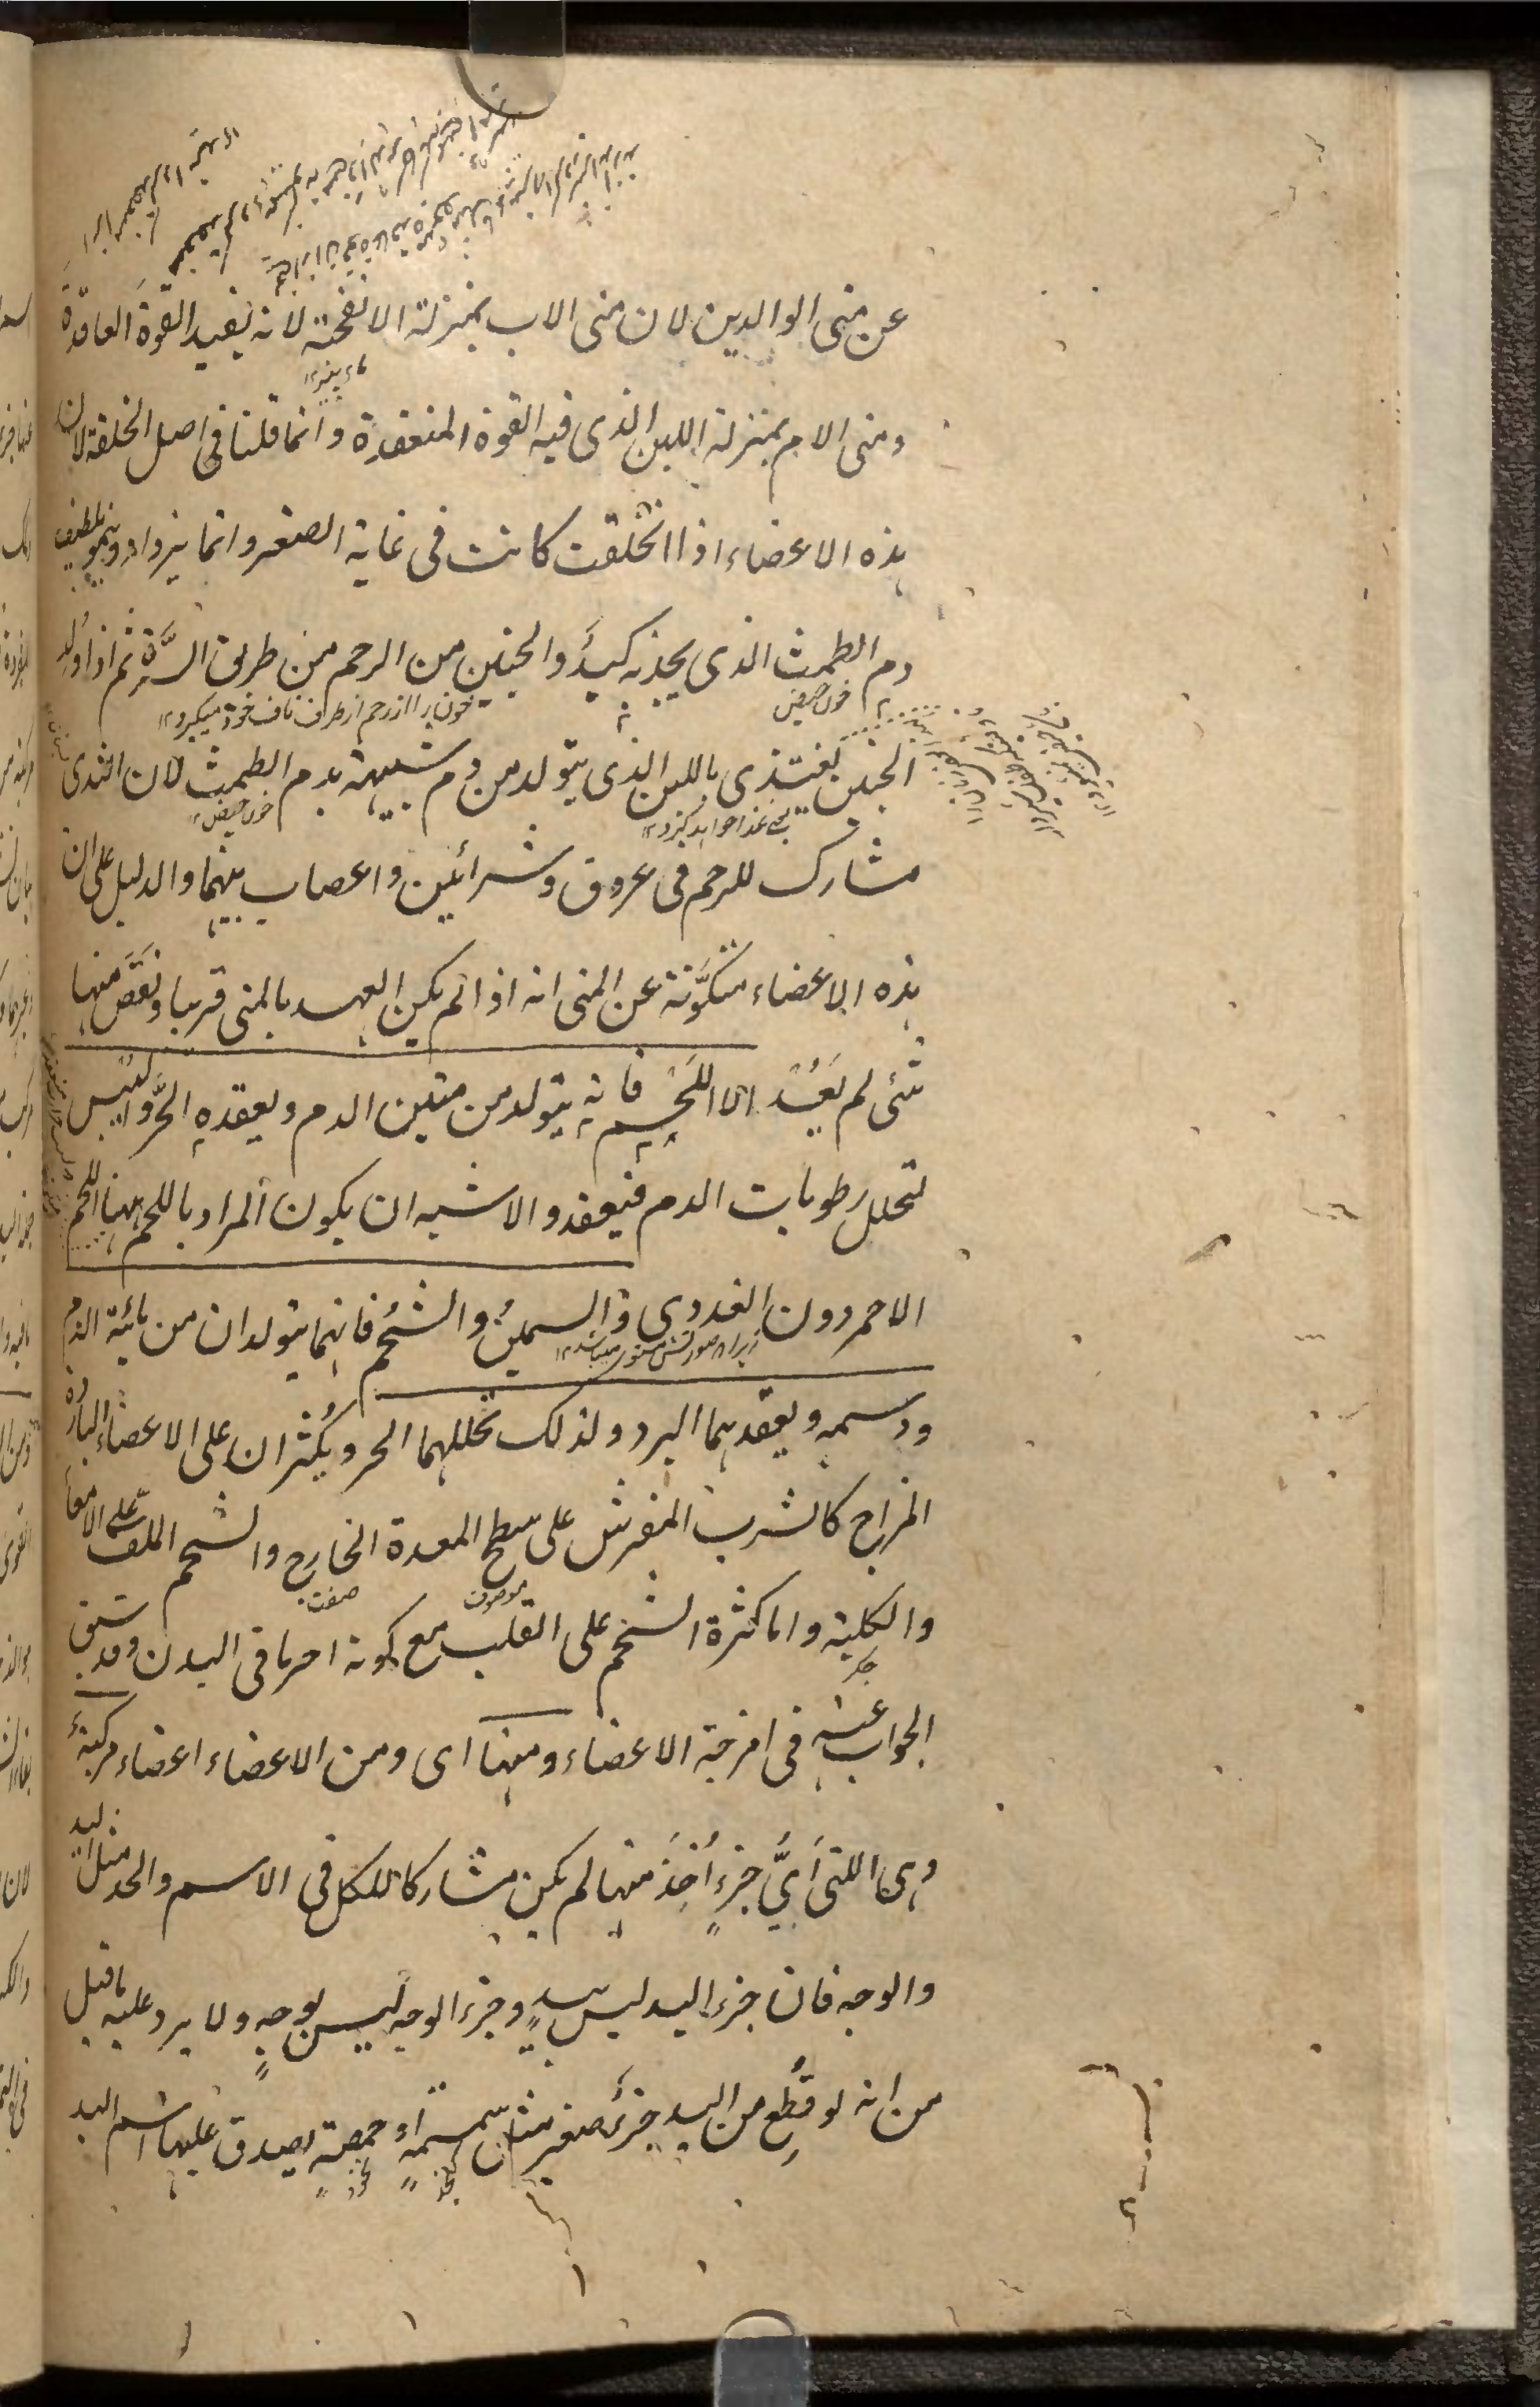 عن منى الوالدين لان منى الاب بمنزلة الانفحة لانه يفيد القوة العاقدة
ومنى الام بمنزلة اللبن الذى فيه القوة المنعقدة وانما قلنا فى اصل الخلقة لان
هذه الاعضاء اذا انخلقت كانت فى غاية الصغر وانما يزداد وينمو
دم الطمث الذى يجذبه كبد الجنين من الرحم من طريق السرة ثم اذا ولد
خون حيض
خون را از رحم از طرف ناف خود ميگيرد
الجنين يغتذى باللبن الذى يتولد من دم شبيهة بدم الطمث لان الثدى
خون حيض
مشارك للرحم فى عروق وشرائين واعصاب بينهما والدليل على ان
هذه الاعضاء متكوَّنة عن المنى انه اذا لم يكن العهد بالمنى قريبا ونقص منها
شئى لم يَعُد الا اللَحم فانه يتولد من متين الدم ويعقده الحرُّ واليبس
لتحلل رطوبات الدم فينعقد والاشبه ان يكون المراد باللحم ههنا اللحم
الاحمر دون الغددى والسمينُ والشحُم فانهما يتولدان من مائية الدم
ودسمه ويعقدهما البرد ولذلك تحللهما الحر ويكثران على الاعضاء الباردة
المزاج كالثرب المنفرش على سطح المعدة الخارج والشحم الملفّ على الامعاء
موصوف
صفت
والكلية واما كثرة الشحم على القلب مع كونه احر ما فى البدن وقد سبق
الجواب عنه فى امزجة الاعضاء ومنها اى ومن الاعضاء اعضاء مركبة
وهى اللتى اَىَّ جزءٍ اُخذَ منها لم يكن مشاركا للكل فى الاسم والحد مثل اليد
والوجه فان جزء اليد ليس بيدٍ وجزء الوجه ليس بوجهٍ ولا يرد عليه ما قيل
من انه لو قُطِع من اليد جزء صغير مثل سمسمةٍ او حمصةٍ يصدق عليها اسم اليد
كنجد
نخود